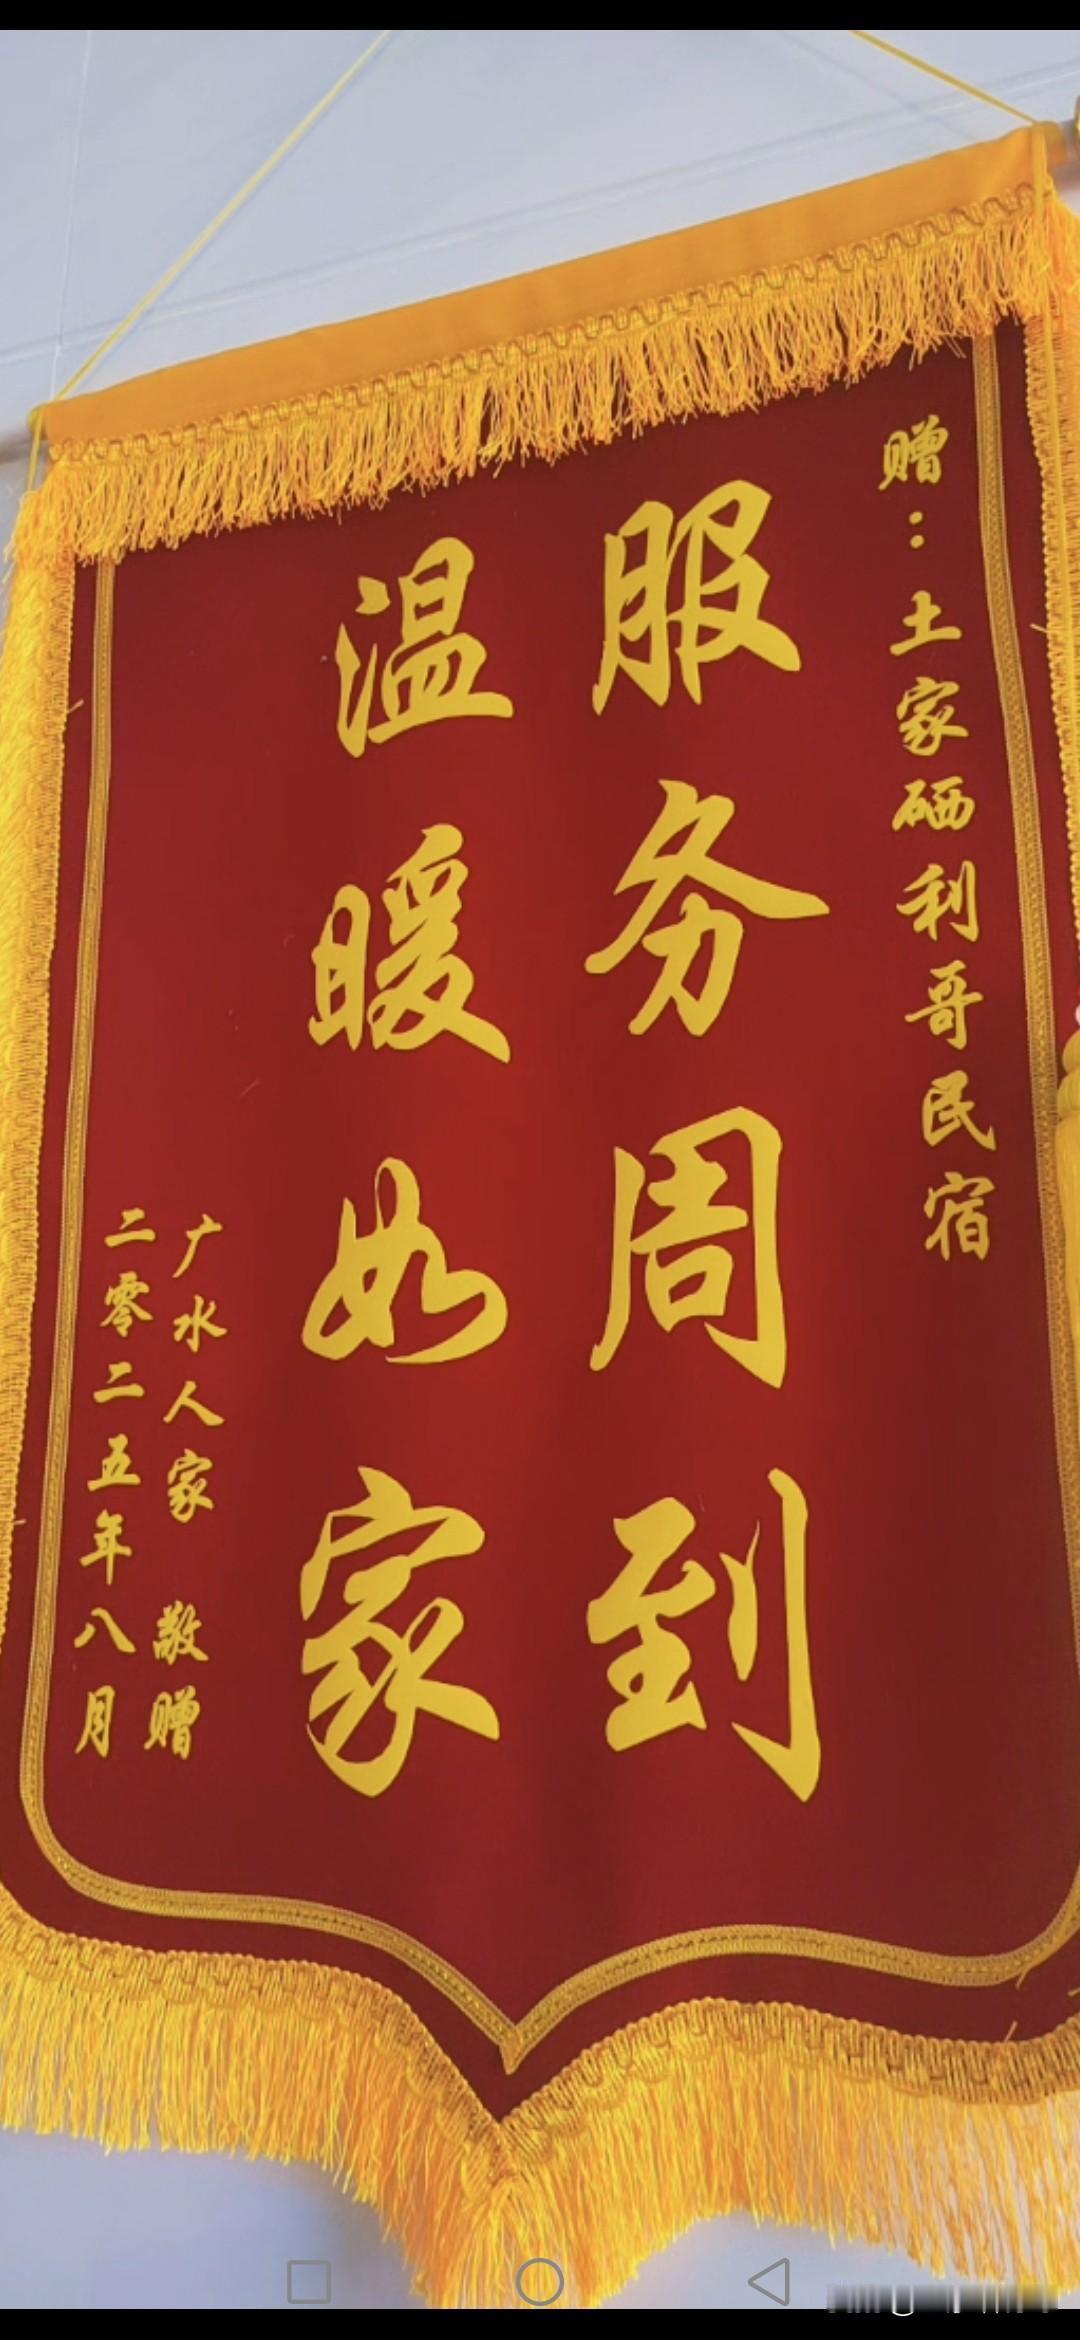 赠：土家硒利哥民宿
服务周到
温暖如家
广水人家 敬赠
二零二五年八月